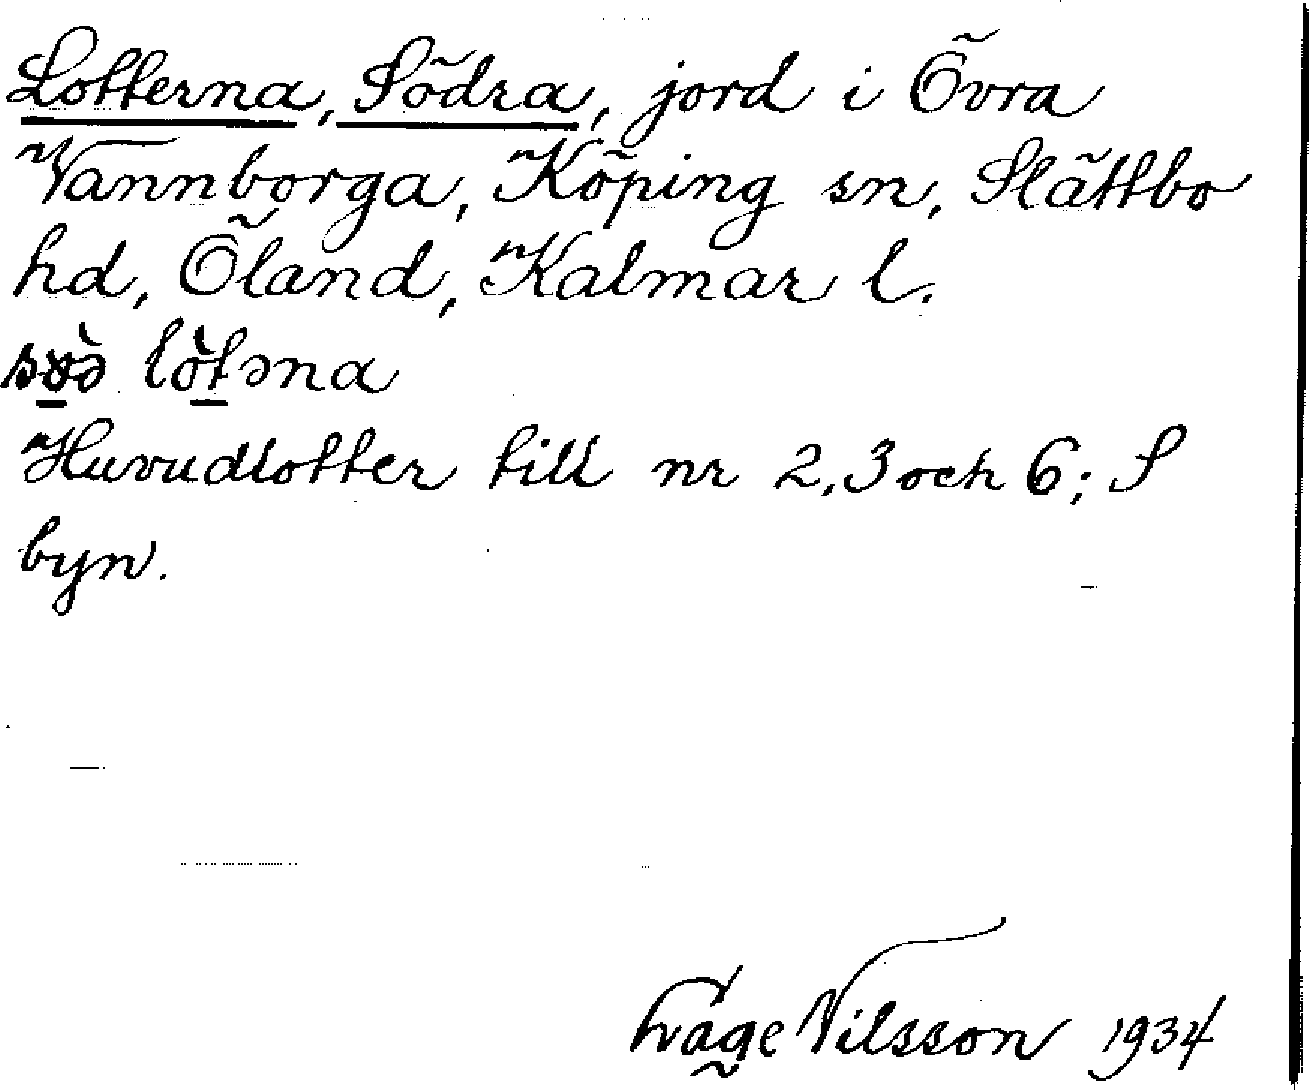 Lotterna, Södra, jord i Övra
Vannborga, Köping sn, Slättbo
hd, Öland, Kalmar l.
lòtəna
Huvudlotter till nr 2, 3 och 6; S
byn.
Nilsson 1934